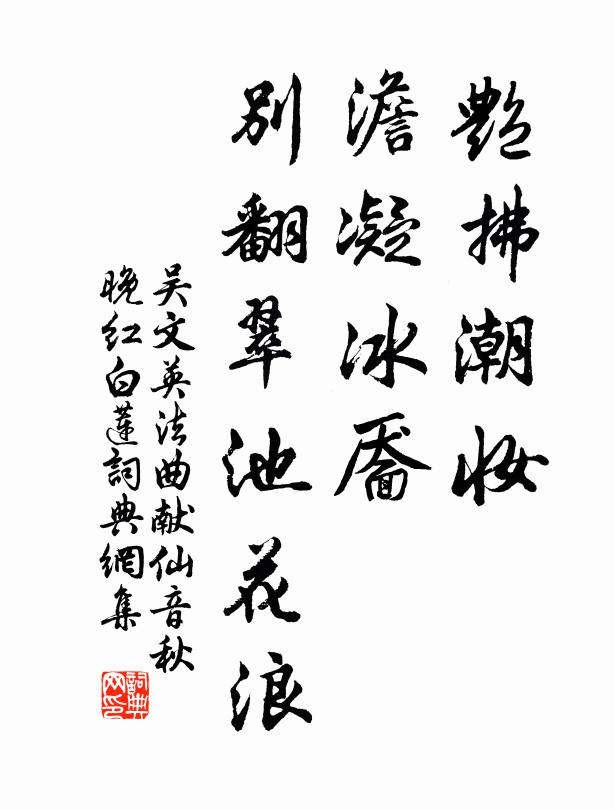 艷拂潮妝
澹凝冰靨
別翻翠池花浪
吴文英法曲献仙音秋
晚红白蓮詞典網集
詞典
网印